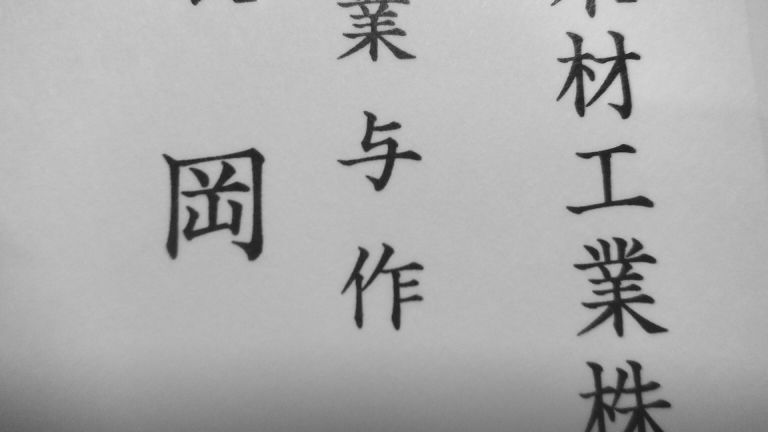 材工業株
業与作
岡